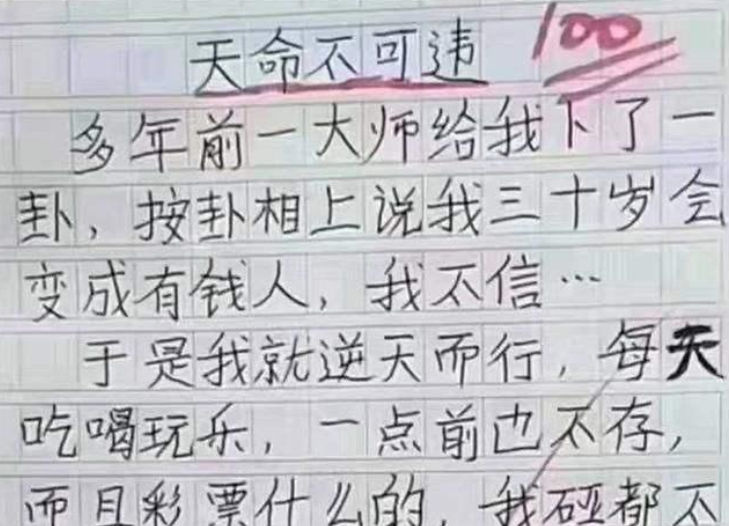 天命不可违 100
多年前一大师给我下了一
卦，按卦相上说我三十岁会
变成有钱人，我不信…
于是我就逆天而行，每天
吃喝玩乐，一点前也不存，
而且彩票什么的，我碰都不